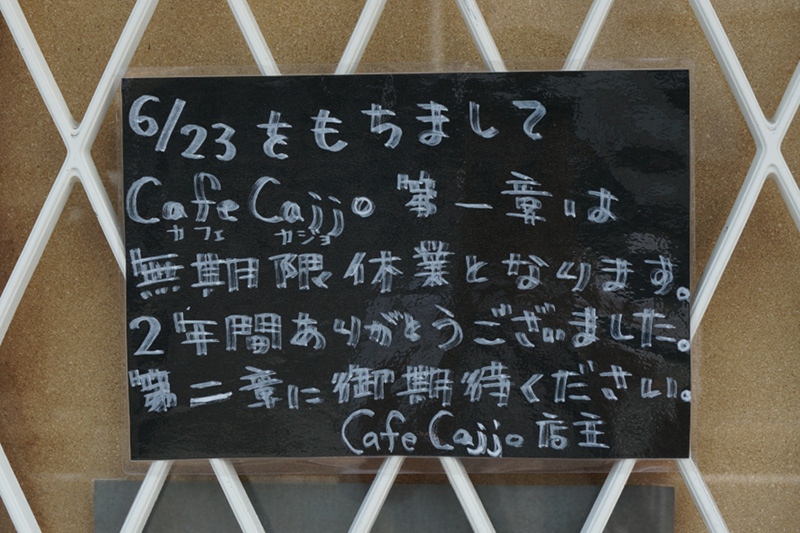 6/23 をもちまして
Cafe Cajjo 第一章は
カフェ カジョ
無期限休業となります。
2年間ありがとうございました。
第二章に御期待ください。
Cafe Cajjo 店主